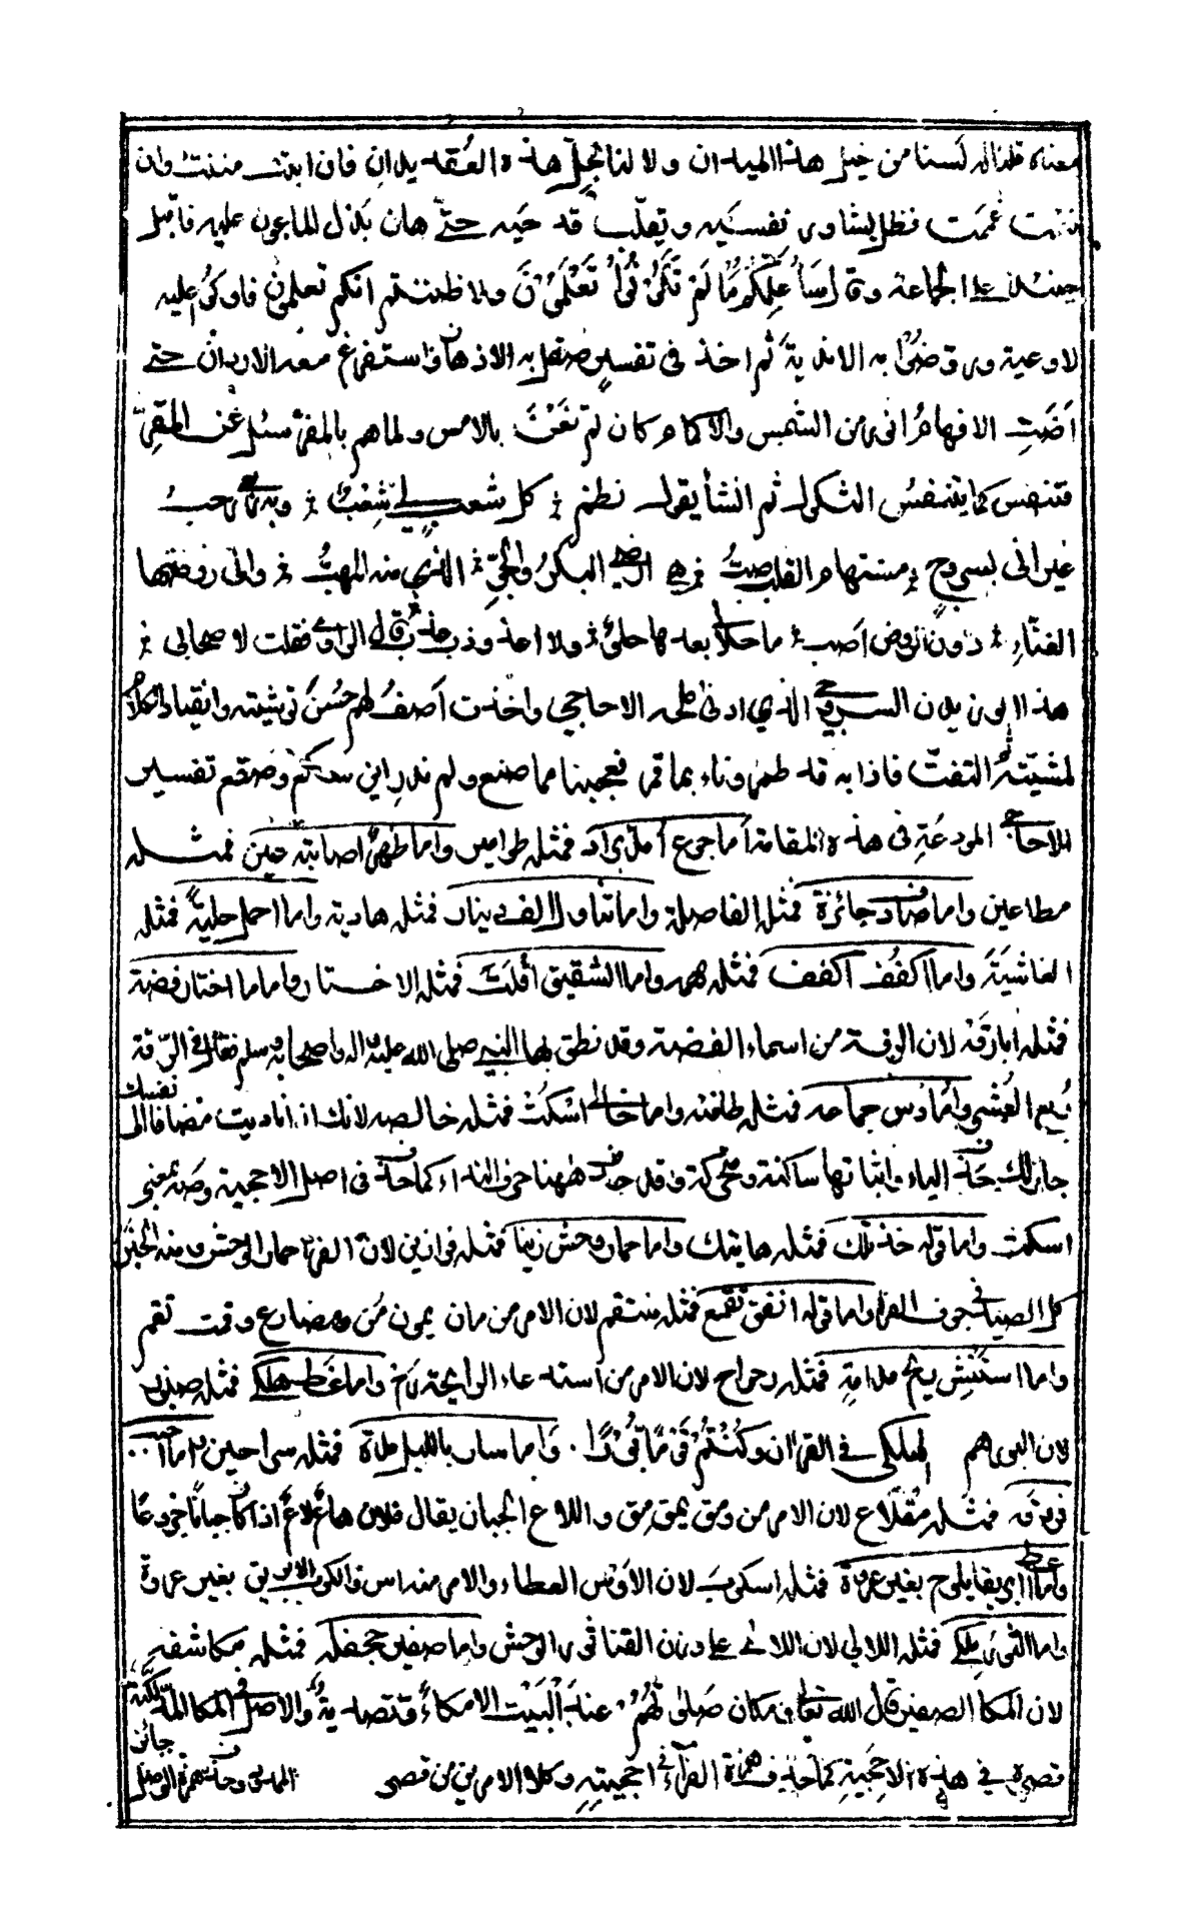 معناه قلنا له لسنا من خيل هذا الميدان ولا لنا بحل هذه العقد يدان فان ابنت مننت وان
كتمت غممت فظل يشاور نفسيه ويقلب قدحيه حتى هان بذل الماعون عليه فاقبل
حينئذ على الجماعة وقال سأعلمكم ما لم تكونوا تعلمون ولا ظننتم انكم تعلمون فاوكوا عليه
الاوعية وروضوا به الاندية ثم اخذ في تفسير صقل به الاذهان واستفرغ معه الاردان حتى
اضت الافهام انور من الشمس والاكمام كان لم تغن بالامس ولما هم بالمفر سئل عن المقر
فتنفس كما يتنفس الثكول ثم انشأ يقول نظم كل شعب لي شعب وبه ربعي رحب
غير اني بسروج مستهام القلب صب هي ارضي البكر والجو الذي منه المهب والى روضتها
الغناء دون الروض اصب ما حلا لي بعدها حلو ولا اعذوذب عذب قال الراوي فقلت لاصحابي
هذا ابو زيد السروجي الذي ادنى ملحه الاحاجي واخذت اصف لهم حسن توشيته وانقياد الكلام
لمشيته ثم التفت فاذا به قد طمر وناء بما قمر فعجبنا مما صنع ولم ندر اين سكع وصقع تفسير
الاحاجي المودعة في هذه المقامة اما جوع امد بزاد فمثله طوامير واما ظهر اصابته عين فمثله
مطاعين واما صادف جائزة فمثل الفاصلة واما تناول الف دينار فمثله هادية واما اهمل حلية فمثله
الغاشية واما اكفف اكفف فمثله مهمه واما الشقيق افلت فمثله الاخطار واما ما اختار فضة
فمثله ابارقة لان الرقة من اسماء الفضة وقد نطق بها النبي صلى الله عليه واله واصحابه وسلم فقال في الرقة
ربع العشر واما دس جماعة فمثله طافئة واما خالي اسكت فمثله خالصه لانك اذا ناديت مضافا الى نفسك
جاز لك حذف الياء واثباتها ساكنة ومتحركة وقد حذف ههنا حرف النداء كما حذف في اصل الاحجية وصه بمعنى
اسكت واما قوله خذ تلك فمثله هاتيك واما حمار وحش زينا فمثله فرازين لان الفرا حمار الوحش ومنه الخبر
كل الصيد في جوف الفرا واما قوله انفق تقمع فمثله منتقم لان الامر من مان يمون من ومضارع وقمت تقم
واما استنش ريح مدامة فمثله رحراح لان الامر من استدعاء الرائحة رح واما غط هلكى فمثله صنبور
لان البور هم الهلكى في القران وكنتم قوما بورا واما سار بالليل مدة فمثله سراحين واما احبب
فروقة فمثله مقلاع لان الامر من ومق يمق مق واللاع الجبان يقال فلان هاع لاع اذا كان جبانا جزوعا
واما اعط ابريقا يلوح بغير عروة فمثله اسكوب لان الاوس العطاء والامر منه اس والكوب الابريق بغير عروة
واما الثور ملكي فمثله اللالي لان اللائ على وزن القنا ثور الوحش واما صفير جحفلة فمثله مكاشفه
لان المكا الصفير قال الله تعالى وما كان صلوتهم عند البيت الا مكاء وتصدية والاصل في المكا المد لكنه
قصره في هذه الاحجية كما حذف همزة الفراء في احجيته وكلا الامرين من قصر الممدود وحذف همزة الوصل جائز